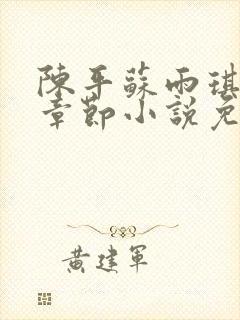 陳平蘇雨琪
章節小說免
黃建軍